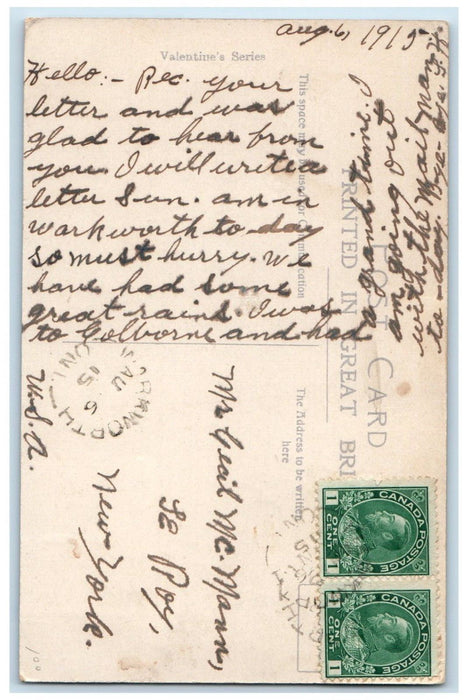 Aug. 6, 1915
Valentine's Series
Hello:- Rec. your
letter and was
glad to hear from
you. I will write a
letter Sun. am in
Warkworth to-day
so must hurry. We
have had some
great rains. I was
to Colborne and had
a grand time. I
am going out
with the Mail man
to-day. Bye-bye.
This space may be used for Communication
POST CARD
PRINTED IN GREAT BRI
The Address to be written
here
Mr Cecil Mc Mann,
Le Roy,
New York.
U.S.A.
WARKWORTH
AU 6
15
ONT
CANADA POSTAGE
1 ONE CENT 1
CANADA POSTAGE
1 ONE CENT 1
100